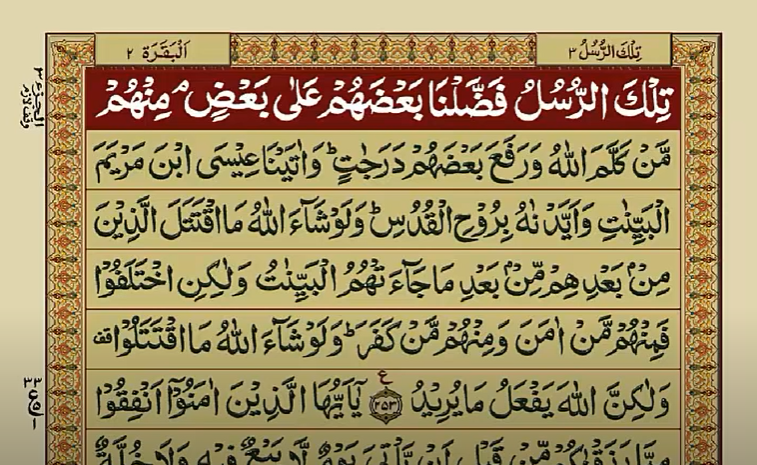 تِلْكَ الرُّسُلُ ٣
اَلْبَقَرَة ٢
تِلْكَ الرُّسُلُ فَضَّلْنَا بَعْضَهُمْ عَلٰى بَعْضٍ ۘ مِنْهُمْ
مَّنْ كَلَّمَ اللّٰهُ وَرَفَعَ بَعْضَهُمْ دَرَجٰتٍ ؕ وَاٰتَيْنَا عِيْسَى ابْنَ مَرْيَمَ
الْبَيِّنٰتِ وَاَيَّدْنٰهُ بِرُوْحِ الْقُدُسِ ؕ وَلَوْ شَآءَ اللّٰهُ مَا اقْتَتَلَ الَّذِيْنَ
مِنْۢ بَعْدِهِمْ مِّنْۢ بَعْدِ مَا جَآءَتْهُمُ الْبَيِّنٰتُ وَلٰكِنِ اخْتَلَفُوْا
فَمِنْهُمْ مَّنْ اٰمَنَ وَمِنْهُمْ مَّنْ كَفَرَ ؕ وَلَوْ شَآءَ اللّٰهُ مَا اقْتَتَلُوْا قف
وَلٰكِنَّ اللّٰهَ يَفْعَلُ مَا يُرِيْدُ ع ٢٥٣ يٰۤاَيُّهَا الَّذِيْنَ اٰمَنُوْۤا اَنْفِقُوْا
مِمَّا رَزَقْنٰكُمْ مِّنْ قَبْلِ اَنْ يَّاْتِيَ يَوْمٌ لَّا بَيْعٌ فِيْهِ وَلَا خُلَّةٌ
الجزء ٣
وقف لازم